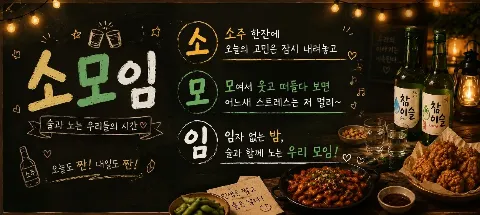 소모임
술과 노는 우리들의 시간♡
오늘도 짠! 내일도 짠!
소주
소
소주 한잔에
오늘의 고민은 잠시 내려놓고
모
모여서 웃고 떠들다 보면
어느새 스트레스는 저 멀리~
임
임자 없는 밤,
술과 함께 노는 우리 모임!
참이슬
참이슬